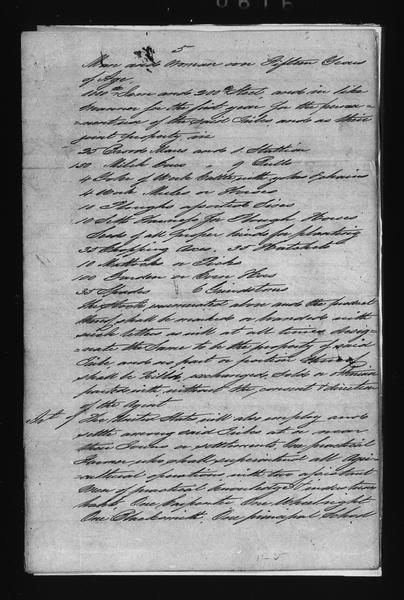 5
Man and Woman over Fifteen Years
of Age
100 lbs Iron and 200 lbs Steel, and in like
manner for the first year for the perma-
nantance of the said Tribes and as their
joint property in
25 Brood Mares and 1 Stallion
150 Milch Cows 9 Bulls
4 Yoke of Work Cattle with yokes & chains
4 Work Mules or Horses
10 Ploughs assorted Sizes
10 Setts Harness for Plough Horses
Seeds of all proper kinds for planting
35 Chopping Axes 35 Hatchets
10 Mattocks or Picks
100 Garden or Corn Hoes
35 Spades 6 Grindstones
The Stock enumerated above and the product
thereof shall be marked or branded with
such letters as will at all times desig-
nate the same to be the property of said
Tribe, and no part or portion thereof
shall be killed, exchanged, sold or otherwise
parted with, without the consent & direction
of the Agent
7 The United States will also employ and
settle among said Tribes at or near
their Towns or settlements One practical
Farmer who shall superintend all Agri-
cultural operations with two assistant
Men of practical knowledge & industrious
habits One Carpenter One Wheelwright
One Blacksmith, One principal School